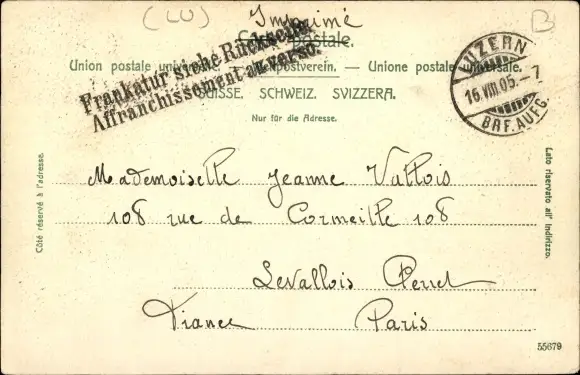 (LU) Imprimé B
Carte postale.
Frankatur siehe Rückseite.
Affranchissement au verso.
Union postale universelle. — Weltpostverein. — Unione postale universale.
SUISSE. SCHWEIZ. SVIZZERA.
Nur für die Adresse.
LUZERN
16.VIII.05.-7
BRF.AUFG.
Côté réservé à l'adresse.
Lato riservato all' indirizzo.
Mademoiselle Jeanne Vattois
108 rue de Cormeille 108
Levallois Perret
France Paris
55679